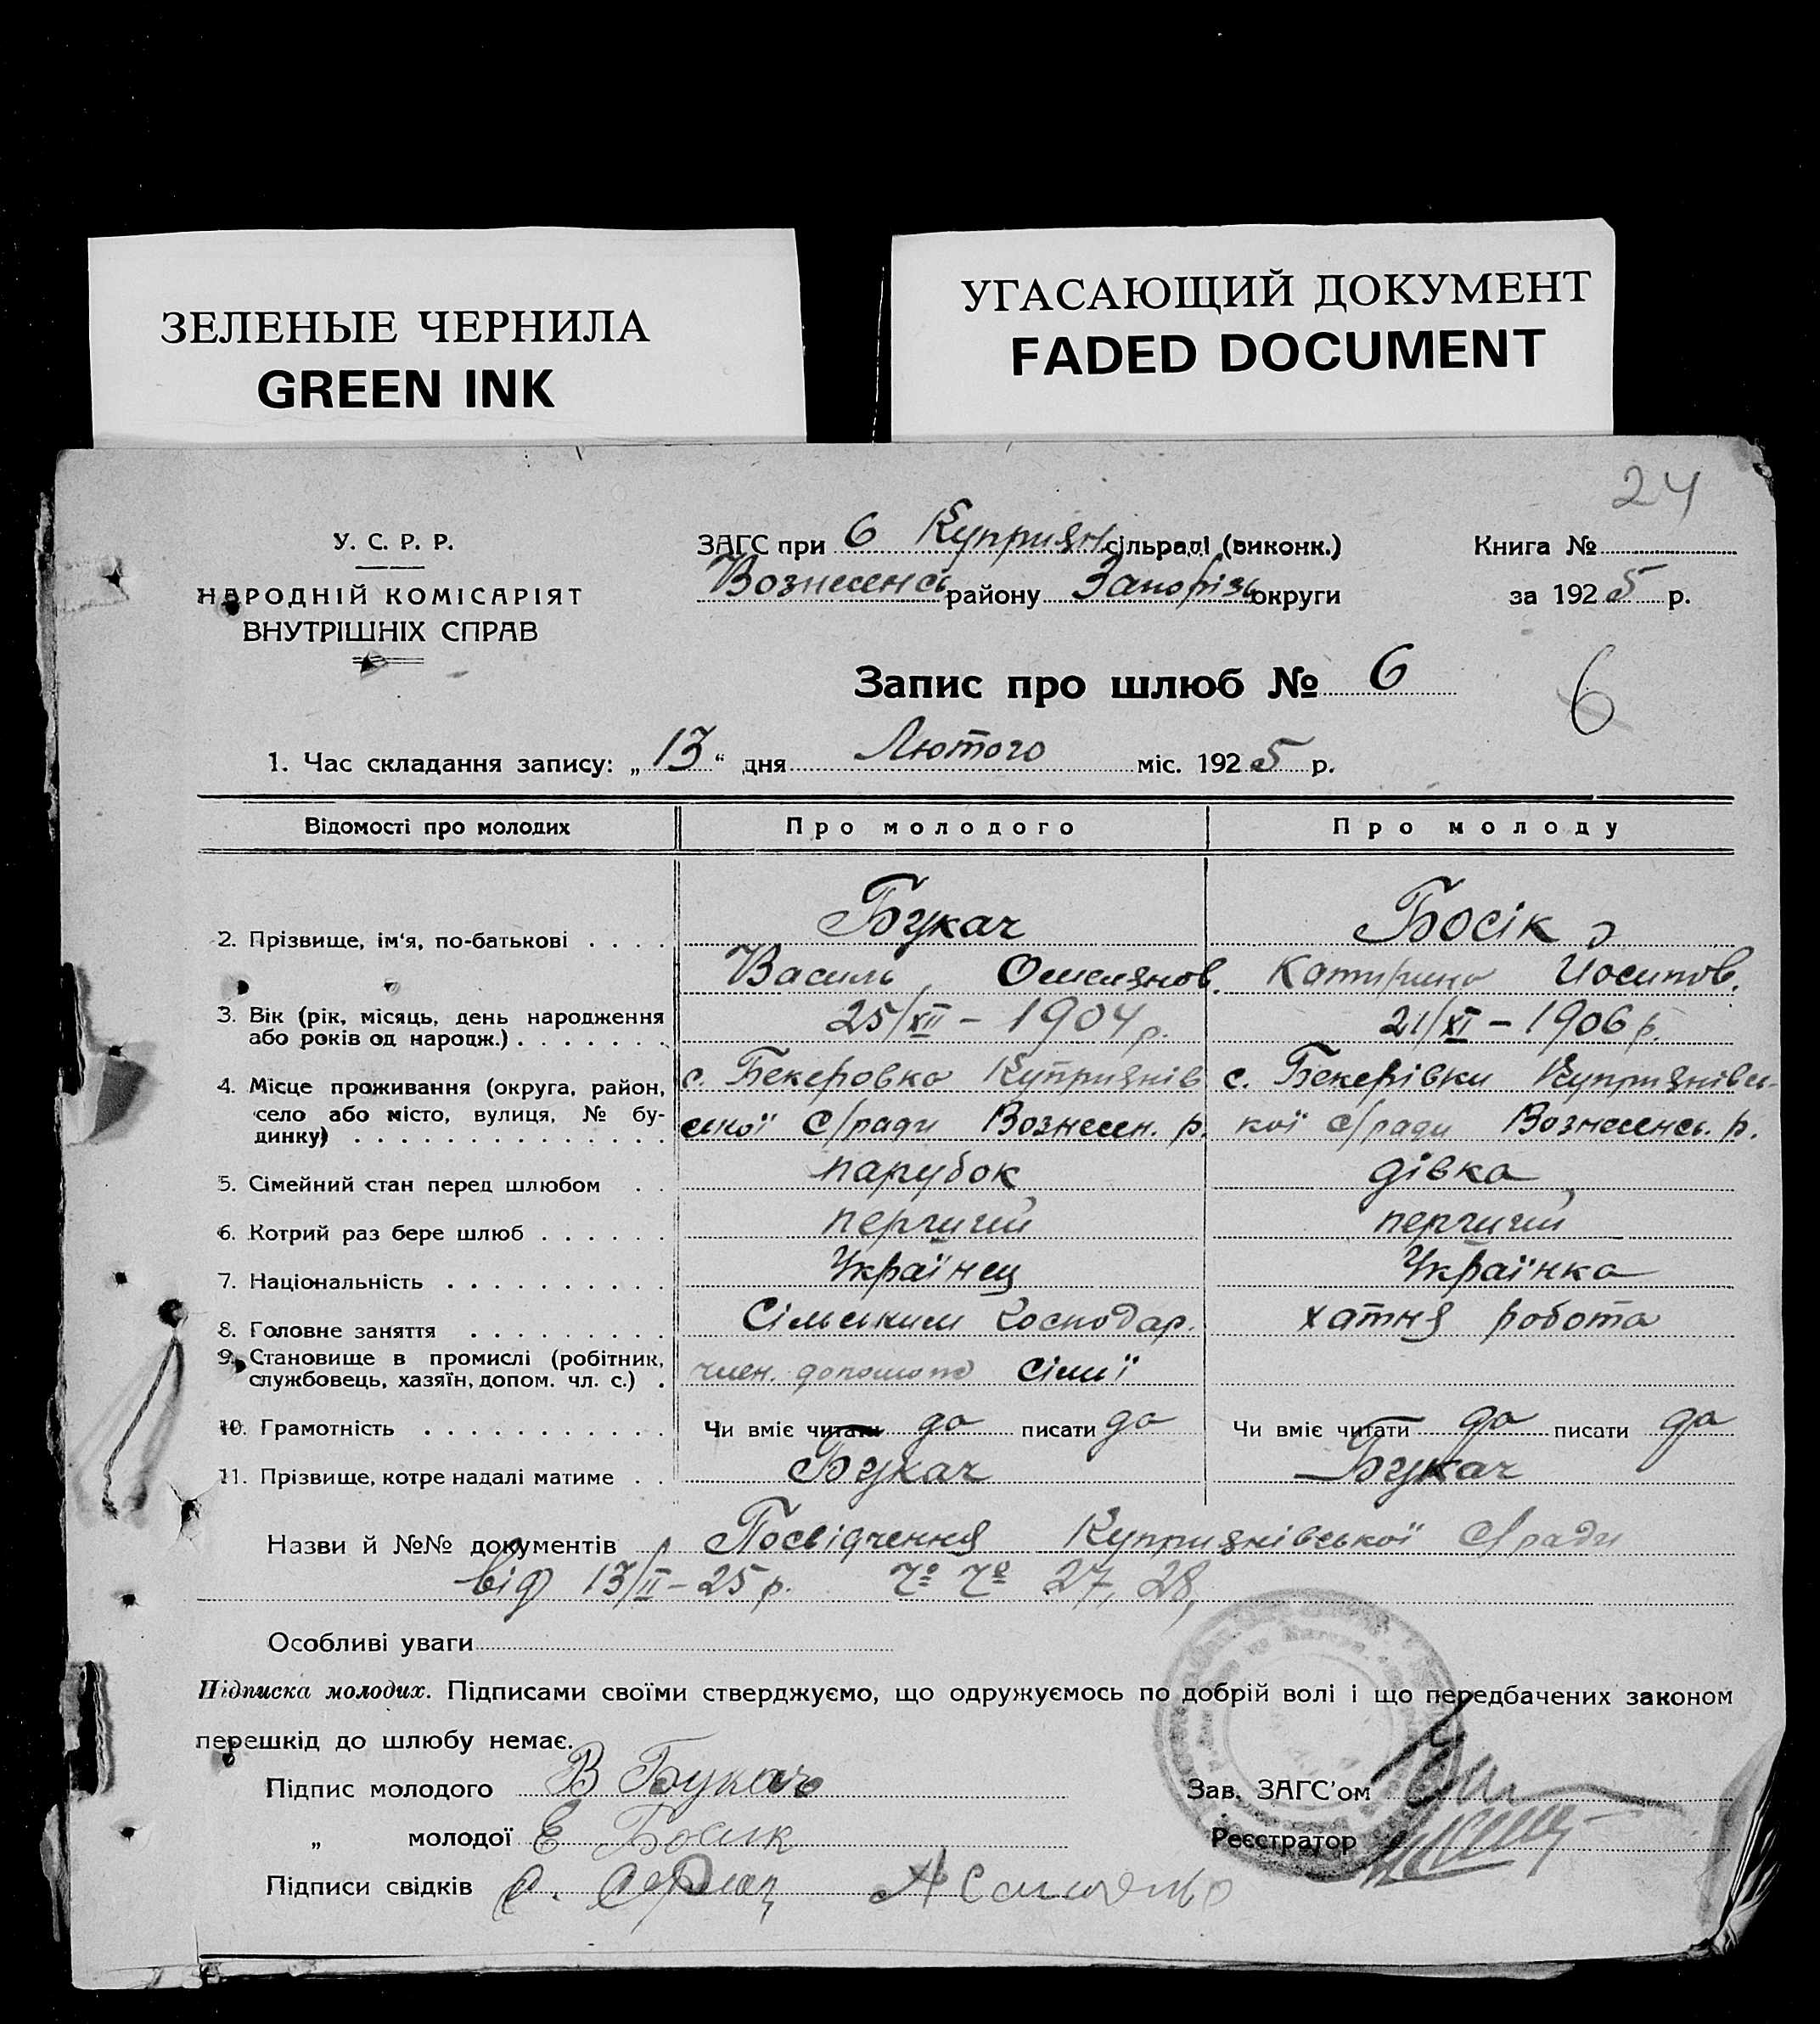 ЗЕЛЕНЫЕ ЧЕРНИЛА
GREEN INK
УГАСАЮЩИЙ ДОКУМЕНТ
FADED DOCUMENT
24
У. С. Р. Р.
НАРОДНІЙ КОМІСАРІЯТ
ВНУТРІШНІХ СПРАВ
ЗАГС при 6 Куприян сільраді (виконк.)
Вознесенсь району Запорізь округи
Книга №
за 1925 р.
Запис про шлюб № 6
6
1. Час складання запису: „13“ дня Лютого міс. 1925 р.
Відомості про молодих Про молодого Про молоду
2. Прізвище, ім'я, по-батькові . . . . Букач Босік
Василь Омелянов. Катирина Йосипов.
3. Вік (рік, місяць, день народження або років од народж.) . . . . . . . 25/XII – 1904 р. 21/XI – 1906 р.
4. Місце проживання (округа, район, с. Бекеровка Куприянів с. Бекерівки Куприянівсь-
село або місто, вулиця, № бу- ської С/ради Вознесен. р. кої с/ради Вознесенсь. р.
динку) . . . . . . . . . . . . . .
5. Сімейний стан перед шлюбом . . парубок дівка
6. Котрий раз бере шлюб . . . . . . перший перший
7. Національність . . . . . . . . . . Українец Українка
8. Головне заняття . . . . . . . . . Сільським Господар. хатня робота
9. Становище в промислі (робітник,
службовець, хазяїн, допом. чл. с.) . член. сімї
10. Грамотність . . . . . . . . . . . Чи вміє читати да писати да Чи вміє читати да писати да
11. Прізвище, котре надалі матиме . . Букач Букач
Назви й №№ документів Посвідчення Куприянівської С/ради
від 13/II – 25 р. №№ 27, 28,
Особливі уваги
Підписка молодих. Підписами своїми стверджуємо, що одружуємось по добрій волі і що передбачених законом
перешкід до шлюбу немає.
Підпис молодого В Букач
„ молодої Е Босик
Зав. ЗАГС'ом
Реєстратор
Підписи свідків